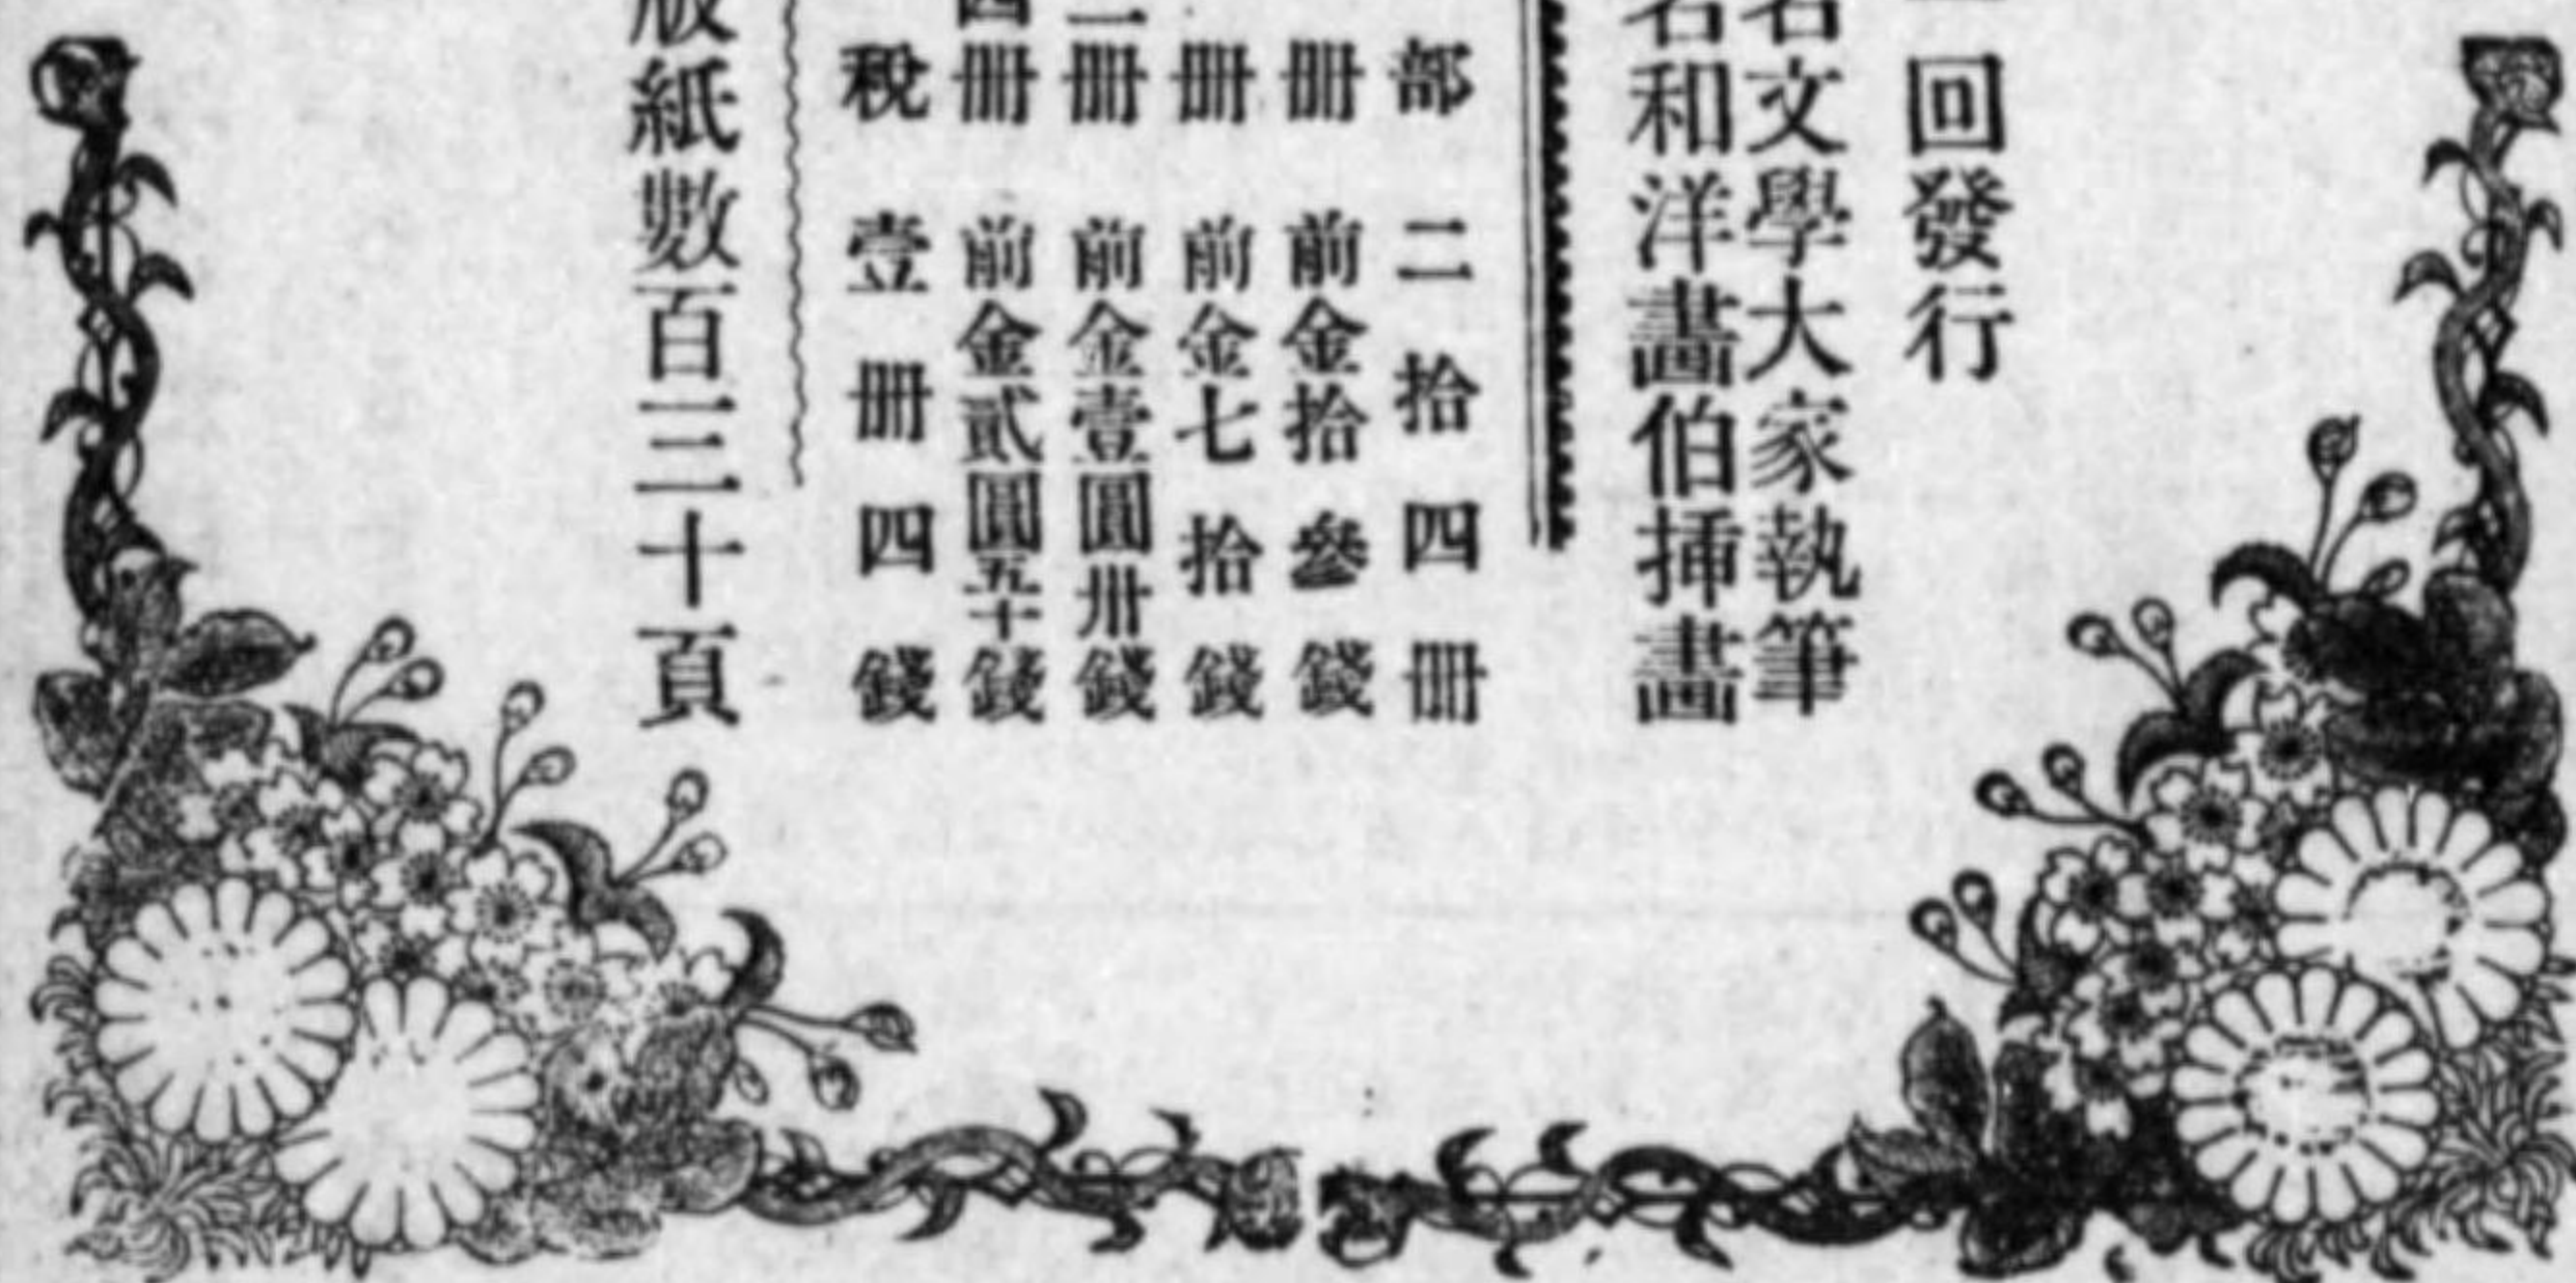 回發行
名文學大家執筆
名和洋畵伯挿畵
部 二拾四冊
冊 前金拾參錢
冊 前金七拾錢
冊 前金壹圓卅錢
四冊 前金貳圓五十錢
稅 壹冊四錢
版紙數百三十頁